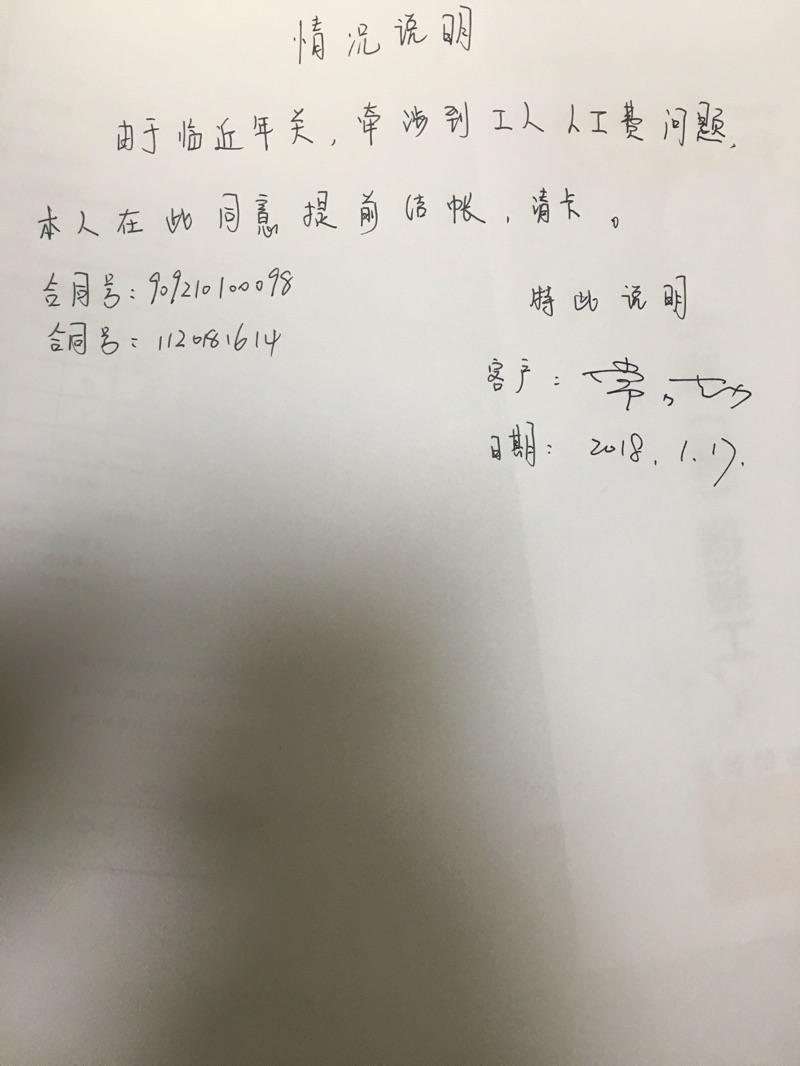 情况说明
由于临近年关，牵涉到工人人工费问题，
本人在此同意提前结帐，清卡。
合同号：909210100098
特此说明
合同号：1120181614
客户：
日期：2018.1.17.